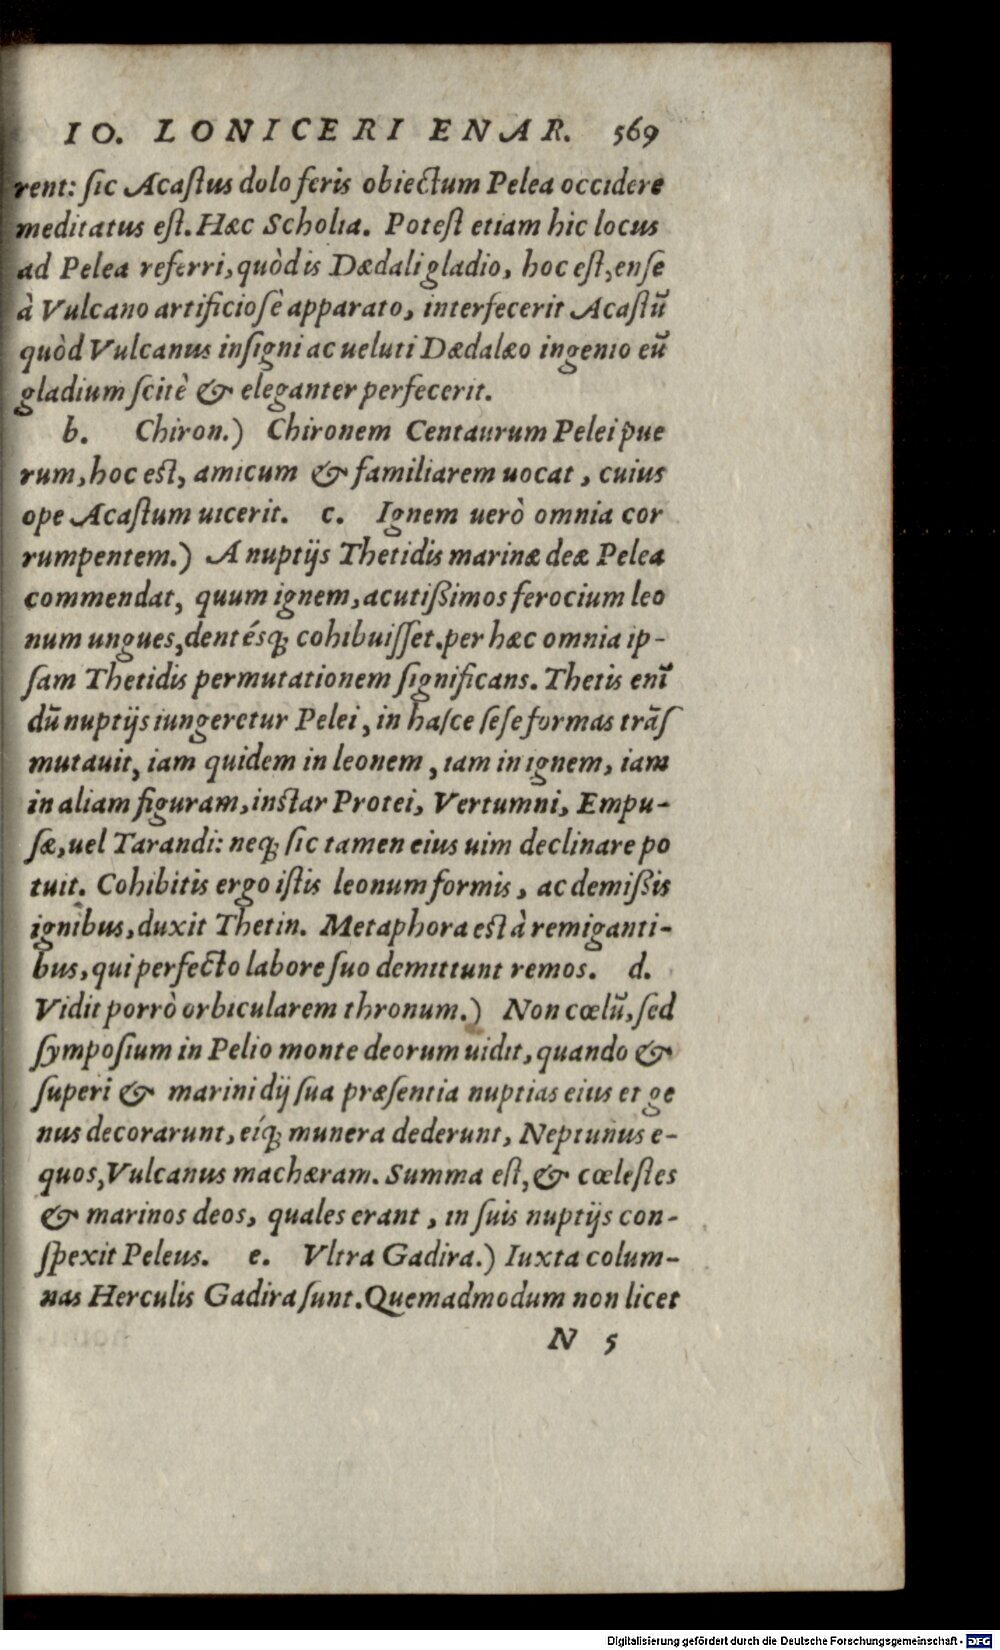 IO. LONICERI ENAR. 569
rent: ſic Acaſtus dolo feris obiectum Pelea occidere
meditatus eſt. Hæc Scholia. Poteſt etiam hic locus
ad Pelea referri, quòd is Dædali gladio, hoc eſt, enſe
à Vulcano artificioſè apparato, interfecerit Acaſtũ
quòd Vulcanus inſigni ac ueluti Dædalæo ingenio eũ
gladium ſcitè & eleganter perfecerit.
b. Chiron.) Chironem Centaurum Pelei pue
rum, hoc eſt, amicum & familiarem uocat, cuius
ope Acaſtum uicerit. c. Ignem uerò omnia cor
rumpentem.) A nuptijs Thetidis marinæ deæ Pelea
commendat, quum ignem, acutißimos ferocium leo
num ungues, dentésq; cohibuiſſet. per hæc omnia ip-
ſam Thetidis permutationem ſignificans. Thetis enĩ
dũ nuptijs iungeretur Pelei, in haſce ſeſe formas trãſ
mutauit, iam quidem in leonem, iam in ignem, iam
in aliam figuram, inſtar Protei, Vertumni, Empu-
ſæ, uel Tarandi: neq; ſic tamen eius uim declinare po
tuit. Cohibitis ergo iſtis leonum formis, ac demißis
ignibus, duxit Thetin. Metaphora eſt à remiganti-
bus, qui perfecto labore ſuo demittunt remos. d.
Vidit porrò orbicularem thronum.) Non cœlũ, ſed
ſympoſium in Pelio monte deorum uidit, quando &
ſuperi & marini dij ſua præſentia nuptias eius et ge
nus decorarunt, eíq; munera dederunt, Neptunus e-
quos, Vulcanus machæram. Summa eſt, & cœleſtes
& marinos deos, quales erant, in ſuis nuptijs con-
ſpexit Peleus. e. Vltra Gadira.) Iuxta colum-
nas Herculis Gadira ſunt. Quemadmodum non licet
N 5
Digitalisierung gefördert durch die Deutsche Forschungsgemeinschaft - DFG